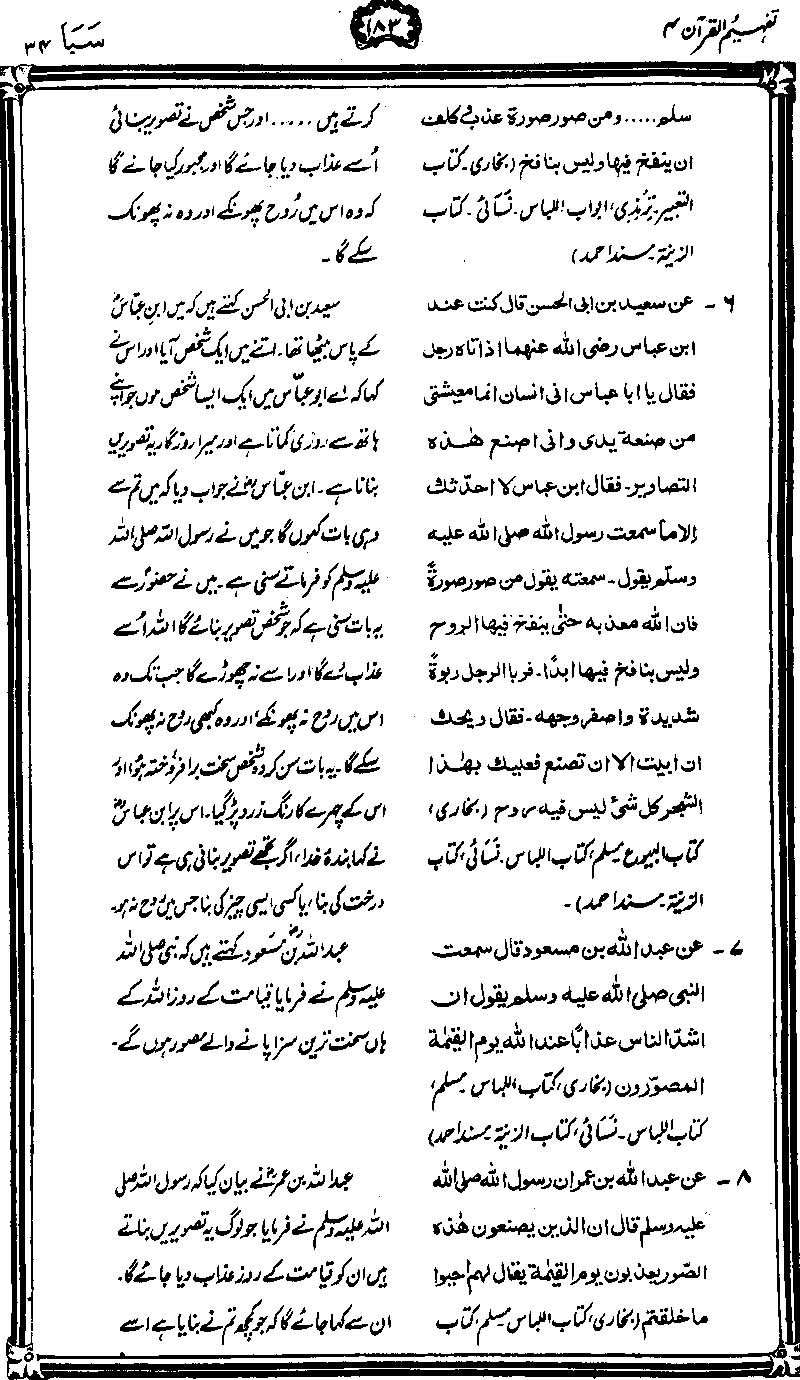 تفہیم القرآن ۴
۱۸۳
سَبَا ۳۴
سلم..... ومن صور صورة عذب وكلف
ان ينفخ فيها وليس بنافخ (بخاری۔ کتاب
التعبیر۔ ترمذی، ابواب اللباس۔ نَسائی۔ کتاب
الزینۃ۔ مسند احمد)
۶ - عن سعيد بن ابی الحسن قال كنت عند
ابن عباس رضی الله عنهما اذ اتاه رجل
فقال يا ابا عباس انی انسان انما معيشتی
من صنعة يدی وانی اصنع هٰذه
التصاوير۔ فقال ابن عباس لا احدّثك
الا ما سمعت رسول الله صلی الله عليه
وسلّم يقول۔ سمعته يقول من صور صورةً
فان الله معذبه حتّٰی ينفخ فيها الروح
وليس بنافخ فيها ابدًا۔ فربا الرجل ربوةً
شديدة واصفر وجهه۔ فقال ويحك
ان ابيت الا ان تصنع فعليك بهٰذا
الشجر كل شئ ليس فيه روح (بخاری،
کتاب البیوع مسلم، کتاب اللباس۔ نَسائی، کتاب
الزینۃ۔ مسند احمد)۔
۷ - عن عبد الله بن مسعود قال سمعت
النبی صلی الله عليه وسلم يقول ان
اشدّ الناس عذابًا عند الله يوم القيٰمة
المصوّرون (بخاری، کتاب اللباس۔ مسلم،
کتاب اللباس۔ نَسائی، کتاب الزینۃ۔ مسند احمد)
۸ - عن عبد الله بن عمر ان رسول الله صلی الله
عليه وسلم قال ان الذين يصنعون هٰذه
الصّور يعذبون يوم القيٰمة يقال لهم احيوا
ما خلقتم (بخاری، کتاب اللباس مسلم، کتاب
کرتے ہیں ..... اور جس شخص نے تصویر بنائی
اُسے عذاب دیا جائے گا اور مجبور کیا جائے گا
کہ وہ اس میں رُوح پھونکے اور وہ نہ پھونک
سکے گا۔
سعید بن ابی الحسن کہتے ہیں کہ میں ابنِ عباسؓ
کے پاس بیٹھا تھا۔ اتنے میں ایک شخص آیا اور اس نے
کہا کہ اے ابو عبّاس میں ایک ایسا شخص ہوں جو اپنے
ہاتھ سے روزی کماتا ہے اور میرا روزگار یہ تصویریں
بنانا ہے۔ ابن عبّاسؓ نے جواب دیا کہ میں تم سے
وہی بات کہوں گا جو میں نے رسول اللہ صلی اللہ
علیہ وسلم کو فرماتے سنی ہے۔ میں نے حضورؐ سے
یہ بات سنی ہے کہ جو شخص تصویر بنائے گا اللہ اُسے
عذاب دے گا اور اسے نہ چھوڑے گا جب تک وہ
اس میں روح نہ پھونکے، اور وہ کبھی روح نہ پھونک
سکے گا۔ یہ بات سن کر وہ شخص سخت برافروختہ ہوا اور
اس کے چہرے کا رنگ زرد پڑ گیا۔ اس پر ابن عباسؓ
نے کہا بندۂ خدا، اگر تجھے تصویر بنانی ہی ہے تو اس
درخت کی بنا، یا کسی ایسی چیز کی بنا جس میں رُوح نہ ہو۔
عبد اللہ بنؓ مسعود کہتے ہیں کہ نبی صلی اللہ
علیہ وسلم نے فرمایا قیامت کے روز اللہ کے
ہاں سخت ترین سزا پانے والے مصور ہوں گے۔
عبد اللہ بن عمرؓ نے بیان کیا کہ رسول اللہ صلی
اللہ علیہ وسلم نے فرمایا جو لوگ یہ تصویریں بناتے
ہیں ان کو قیامت کے روز عذاب دیا جائے گا۔
ان سے کہا جائے گا کہ جو کچھ تم نے بنایا ہے اسے